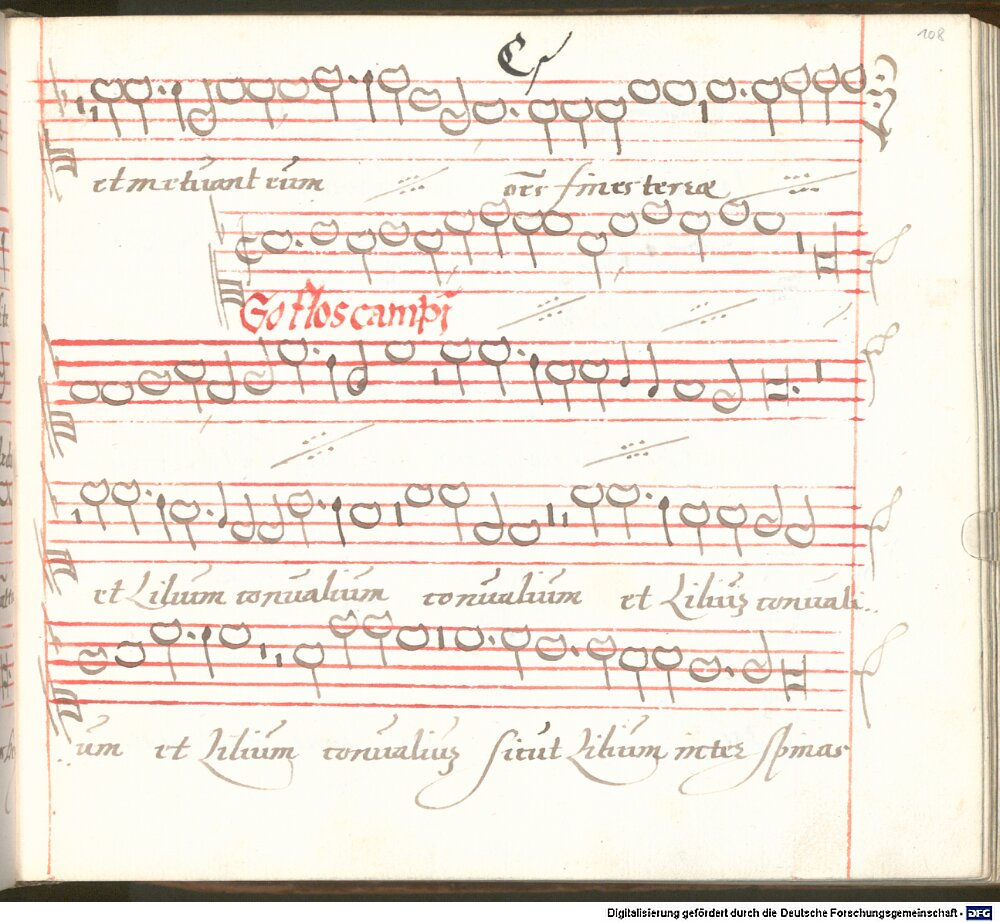 108
et metuant eum oēs fines terræ
Ego flos campi
et Lilium conualium conualium et Liliuȝ conuali..
..um et Lilium conualiuȝ sicut Lilium inter spinas
Digitalisierung gefördert durch die Deutsche Forschungsgemeinschaft - DFG